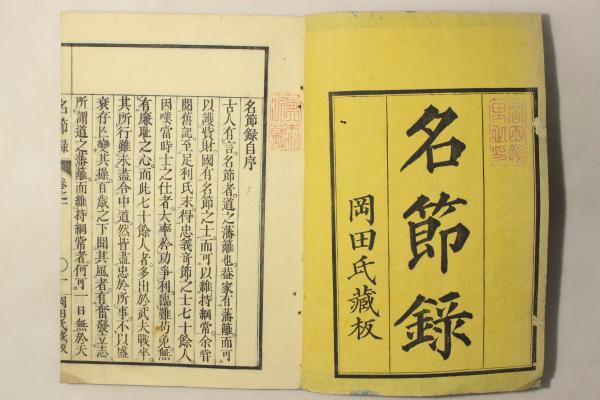 名節録
岡田氏藏板
名節録自序
古人有言名節者道之藩籬也蓋家有藩籬而可
以護貲財國有名節之士而可以維持綱常余甞
閲舊記至足利氏末得忠義音節之士七十餘人
因嘆當時士之仕者大率於功爭利臨難茍免無
有廉耻之心而此七十餘人者多出於武夫戰卒
其所行雖未盡合中道然皆盡忠於所事不以盛
衰存亡變其操百歳之下聞其風者有奮發立志
所謂道之藩籬而維持綱常者何可一日無於天
名節録
卷之一
〇一
岡田氏藏板